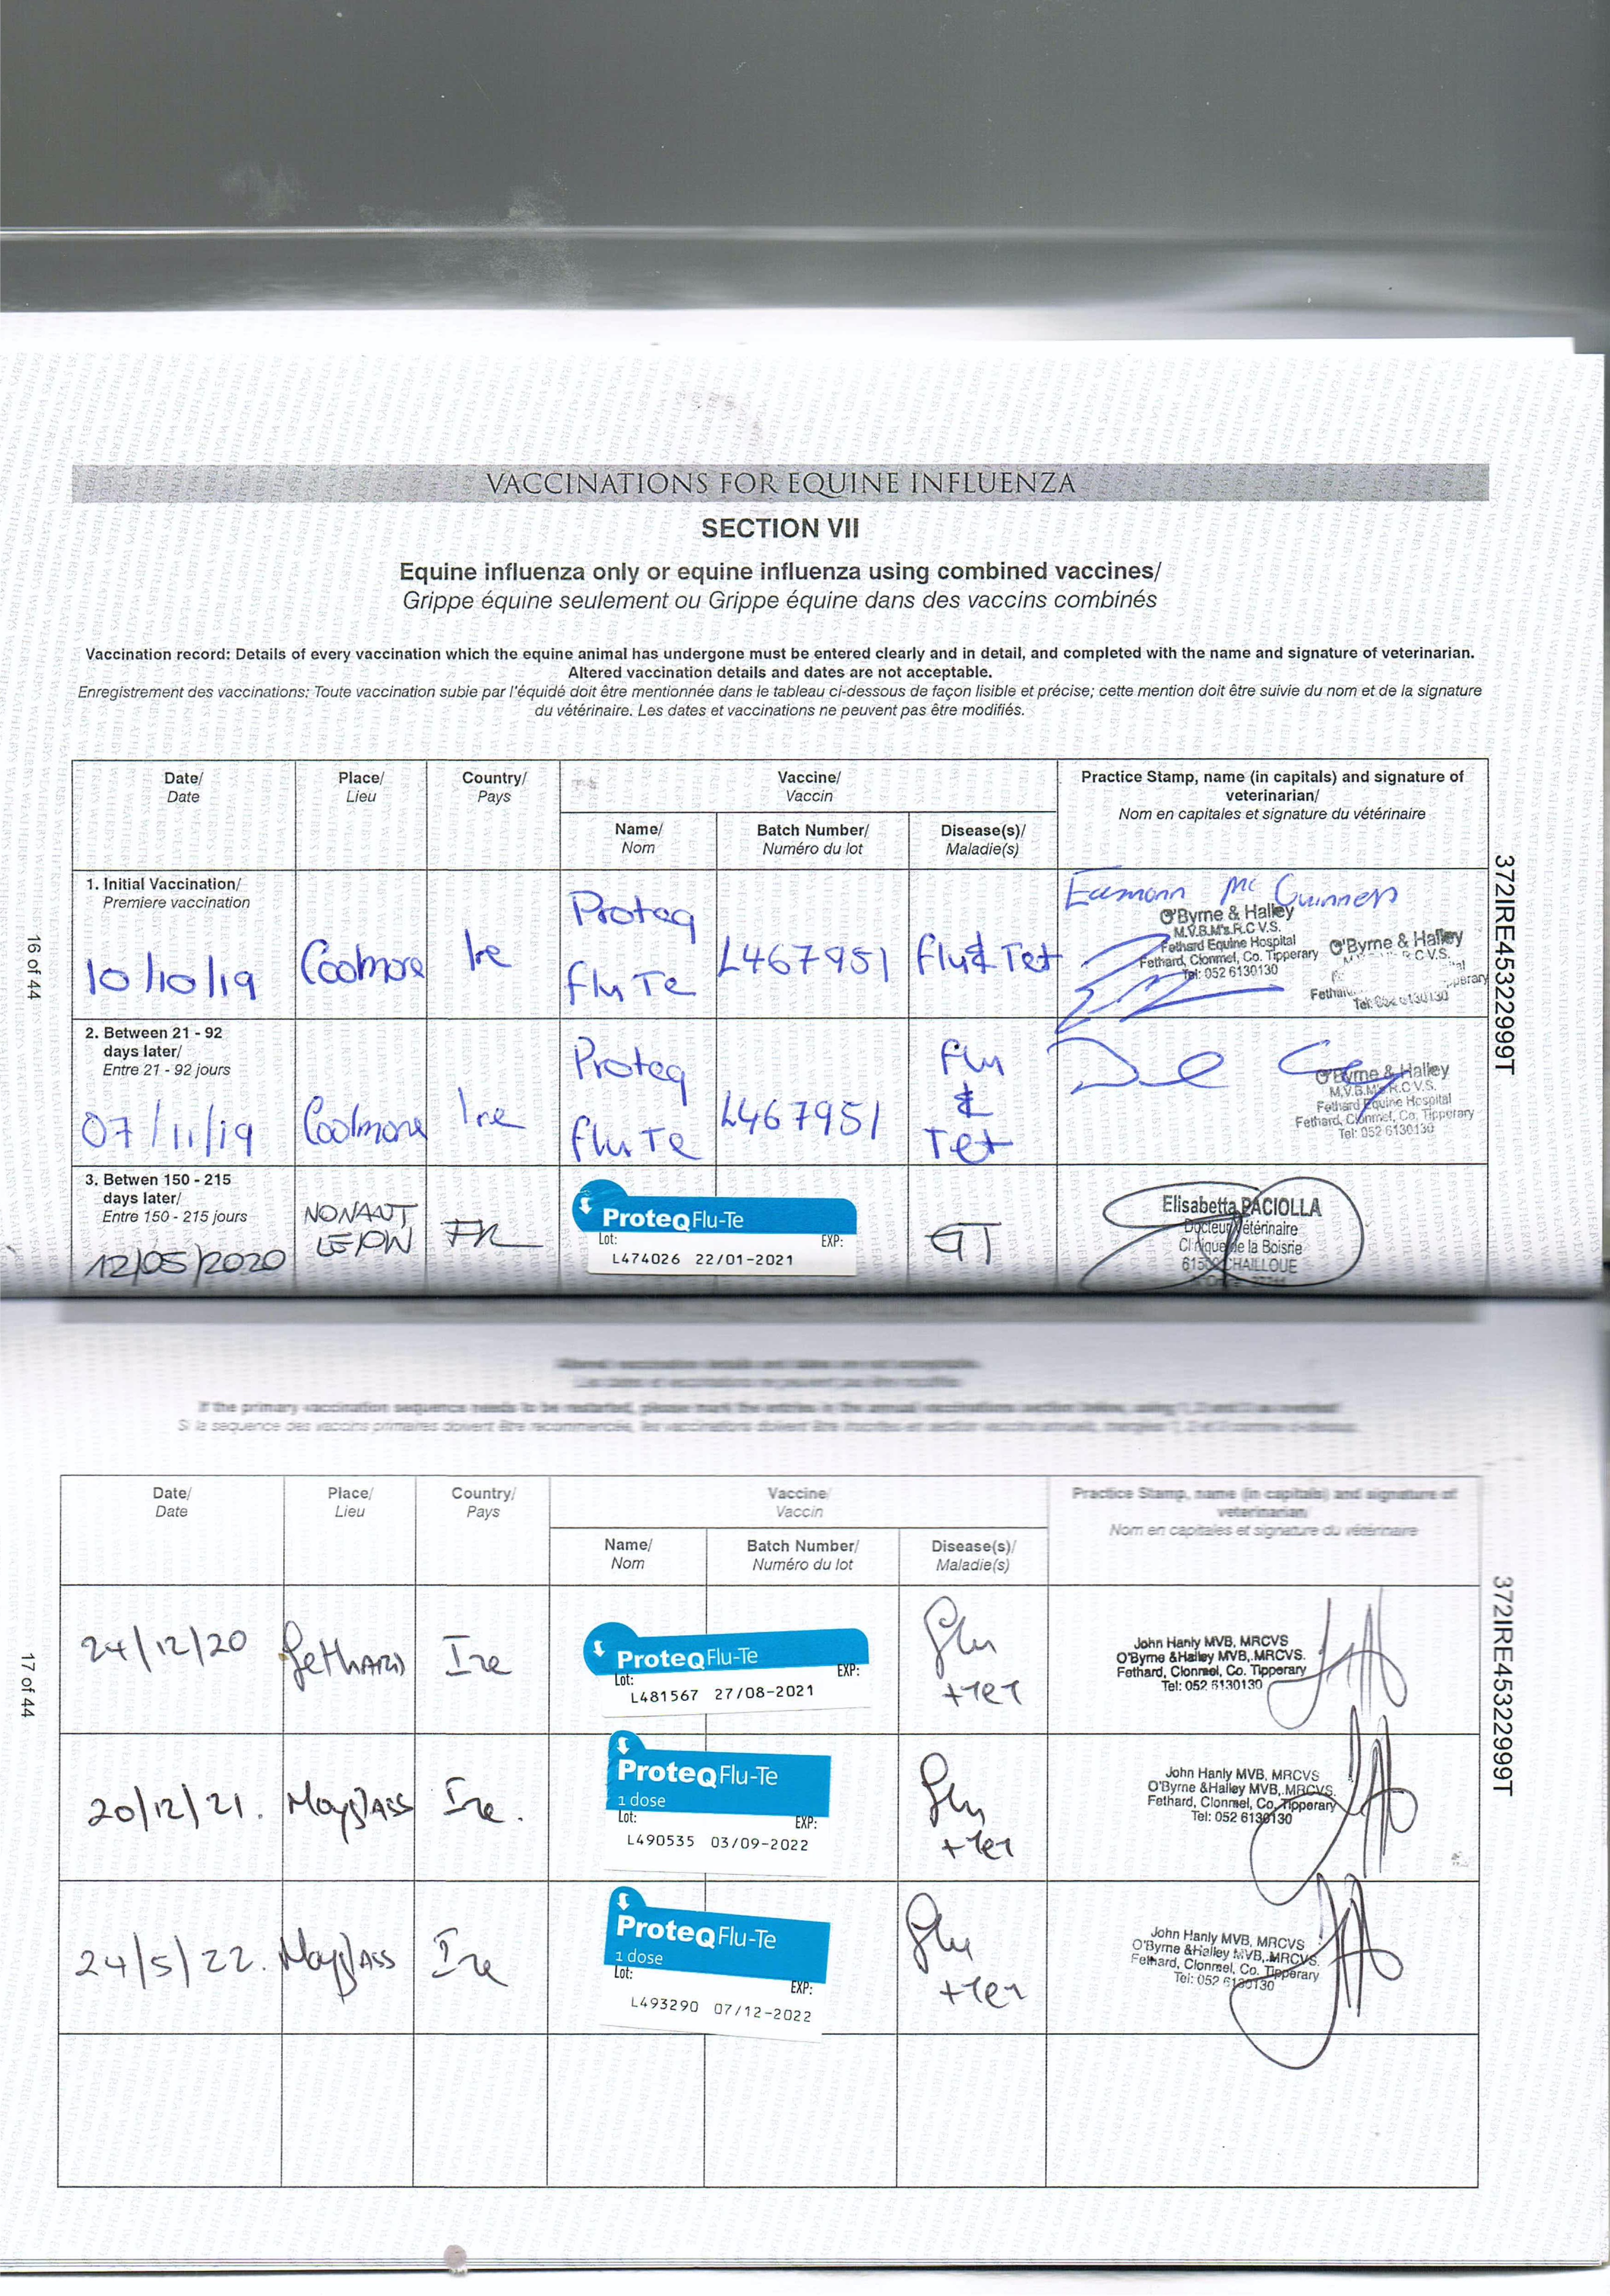 VACCINATIONS FOR EQUINE INFLUENZA
SECTION VII
Equine influenza only or equine influenza using combined vaccines/
Grippe équine seulement ou Grippe équine dans des vaccins combinés
Vaccination record: Details of every vaccination which the equine animal has undergone must be entered clearly and in detail, and completed with the name and signature of veterinarian.
Altered vaccination details and dates are not acceptable.
Enregistrement des vaccinations: Toute vaccination subie par l'équidé doit être mentionnée dans le tableau ci-dessous de façon lisible et précise; cette mention doit être suivie du nom et de la signature
du vétérinaire. Les dates et vaccinations ne peuvent pas être modifiés.
Date/
Date
Place/
Lieu
Country/
Pays
Vaccine/
Vaccin
Name/
Nom
Batch Number/
Numéro du lot
Disease(s)/
Maladie(s)
Practice Stamp, name (in capitals) and signature of
veterinarian/
Nom en capitales et signature du vétérinaire
1. Initial Vaccination/
Premiere vaccination
10/10/19
Coolmore
Ire
Proteq
flu Te
L467951
flu & Tet
Eamonn Mc Guinness
O'Byrne & Halley
M.V.B.M's.R.C V.S.
Fethard Equine Hospital
Fethard, Clonmel, Co. Tipperary
Tel: 052 6130130
O'Byrne & Halley
R C V.S.
2. Between 21 - 92
days later/
Entre 21 - 92 jours
07/11/19
Coolmore
Ire
Proteq
flu Te
L467951
flu
&
Tet
O'Byrne & Halley
M.V.B.M's.R.C V.S.
Fethard Equine Hospital
Fethard, Clonmel, Co. Tipperary
Tel: 052 6130130
3. Betwen 150 - 215
days later/
Entre 150 - 215 jours
12/05/2020
NONANT
LE PIN
FR
ProteqFlu-Te
Lot: EXP:
L474026 22/01-2021
GT
Elisabetta PACIOLLA
Docteur Vétérinaire
Clinique de la Boisrie
61500 CHAILLOUE
16 of 44
372IRE45322999T
If the primary vaccination sequence needs to be restarted, please mark the entries in the annual vaccinations section below, using 1, 2 and 3 as overleaf
Date/
Date
Place/
Lieu
Country/
Pays
Vaccine/
Vaccin
Name/
Nom
Batch Number/
Numéro du lot
Disease(s)/
Maladie(s)
Practice Stamp, name (in capitals) and signature of
veterinarian/
Nom en capitales et signature du vétérinaire
24/12/20
Fethard
Ire
ProteqFlu-Te
Lot: EXP:
L481567 27/08-2021
Flu
+Tet
John Hanly MVB, MRCVS
O'Byrne &Halley MVB,.MRCVS.
Fethard, Clonmel, Co. Tipperary
Tel: 052 6130130
20/12/21.
Mayglass
Ire.
ProteqFlu-Te
1 dose
Lot: EXP:
L490535 03/09-2022
Flu
+Tet
John Hanly MVB, MRCVS
O'Byrne &Halley MVB,.MRCVS.
Fethard, Clonmel, Co. Tipperary
Tel: 052 6130130
24/5/22.
Mayglass
Ire
ProteqFlu-Te
1 dose
Lot: EXP:
L493290 07/12-2022
Flu
+Tet
John Hanly MVB, MRCVS
O'Byrne &Halley MVB,.MRCVS.
Fethard, Clonmel, Co. Tipperary
Tel: 052 6130130
17 of 44
372IRE45322999T